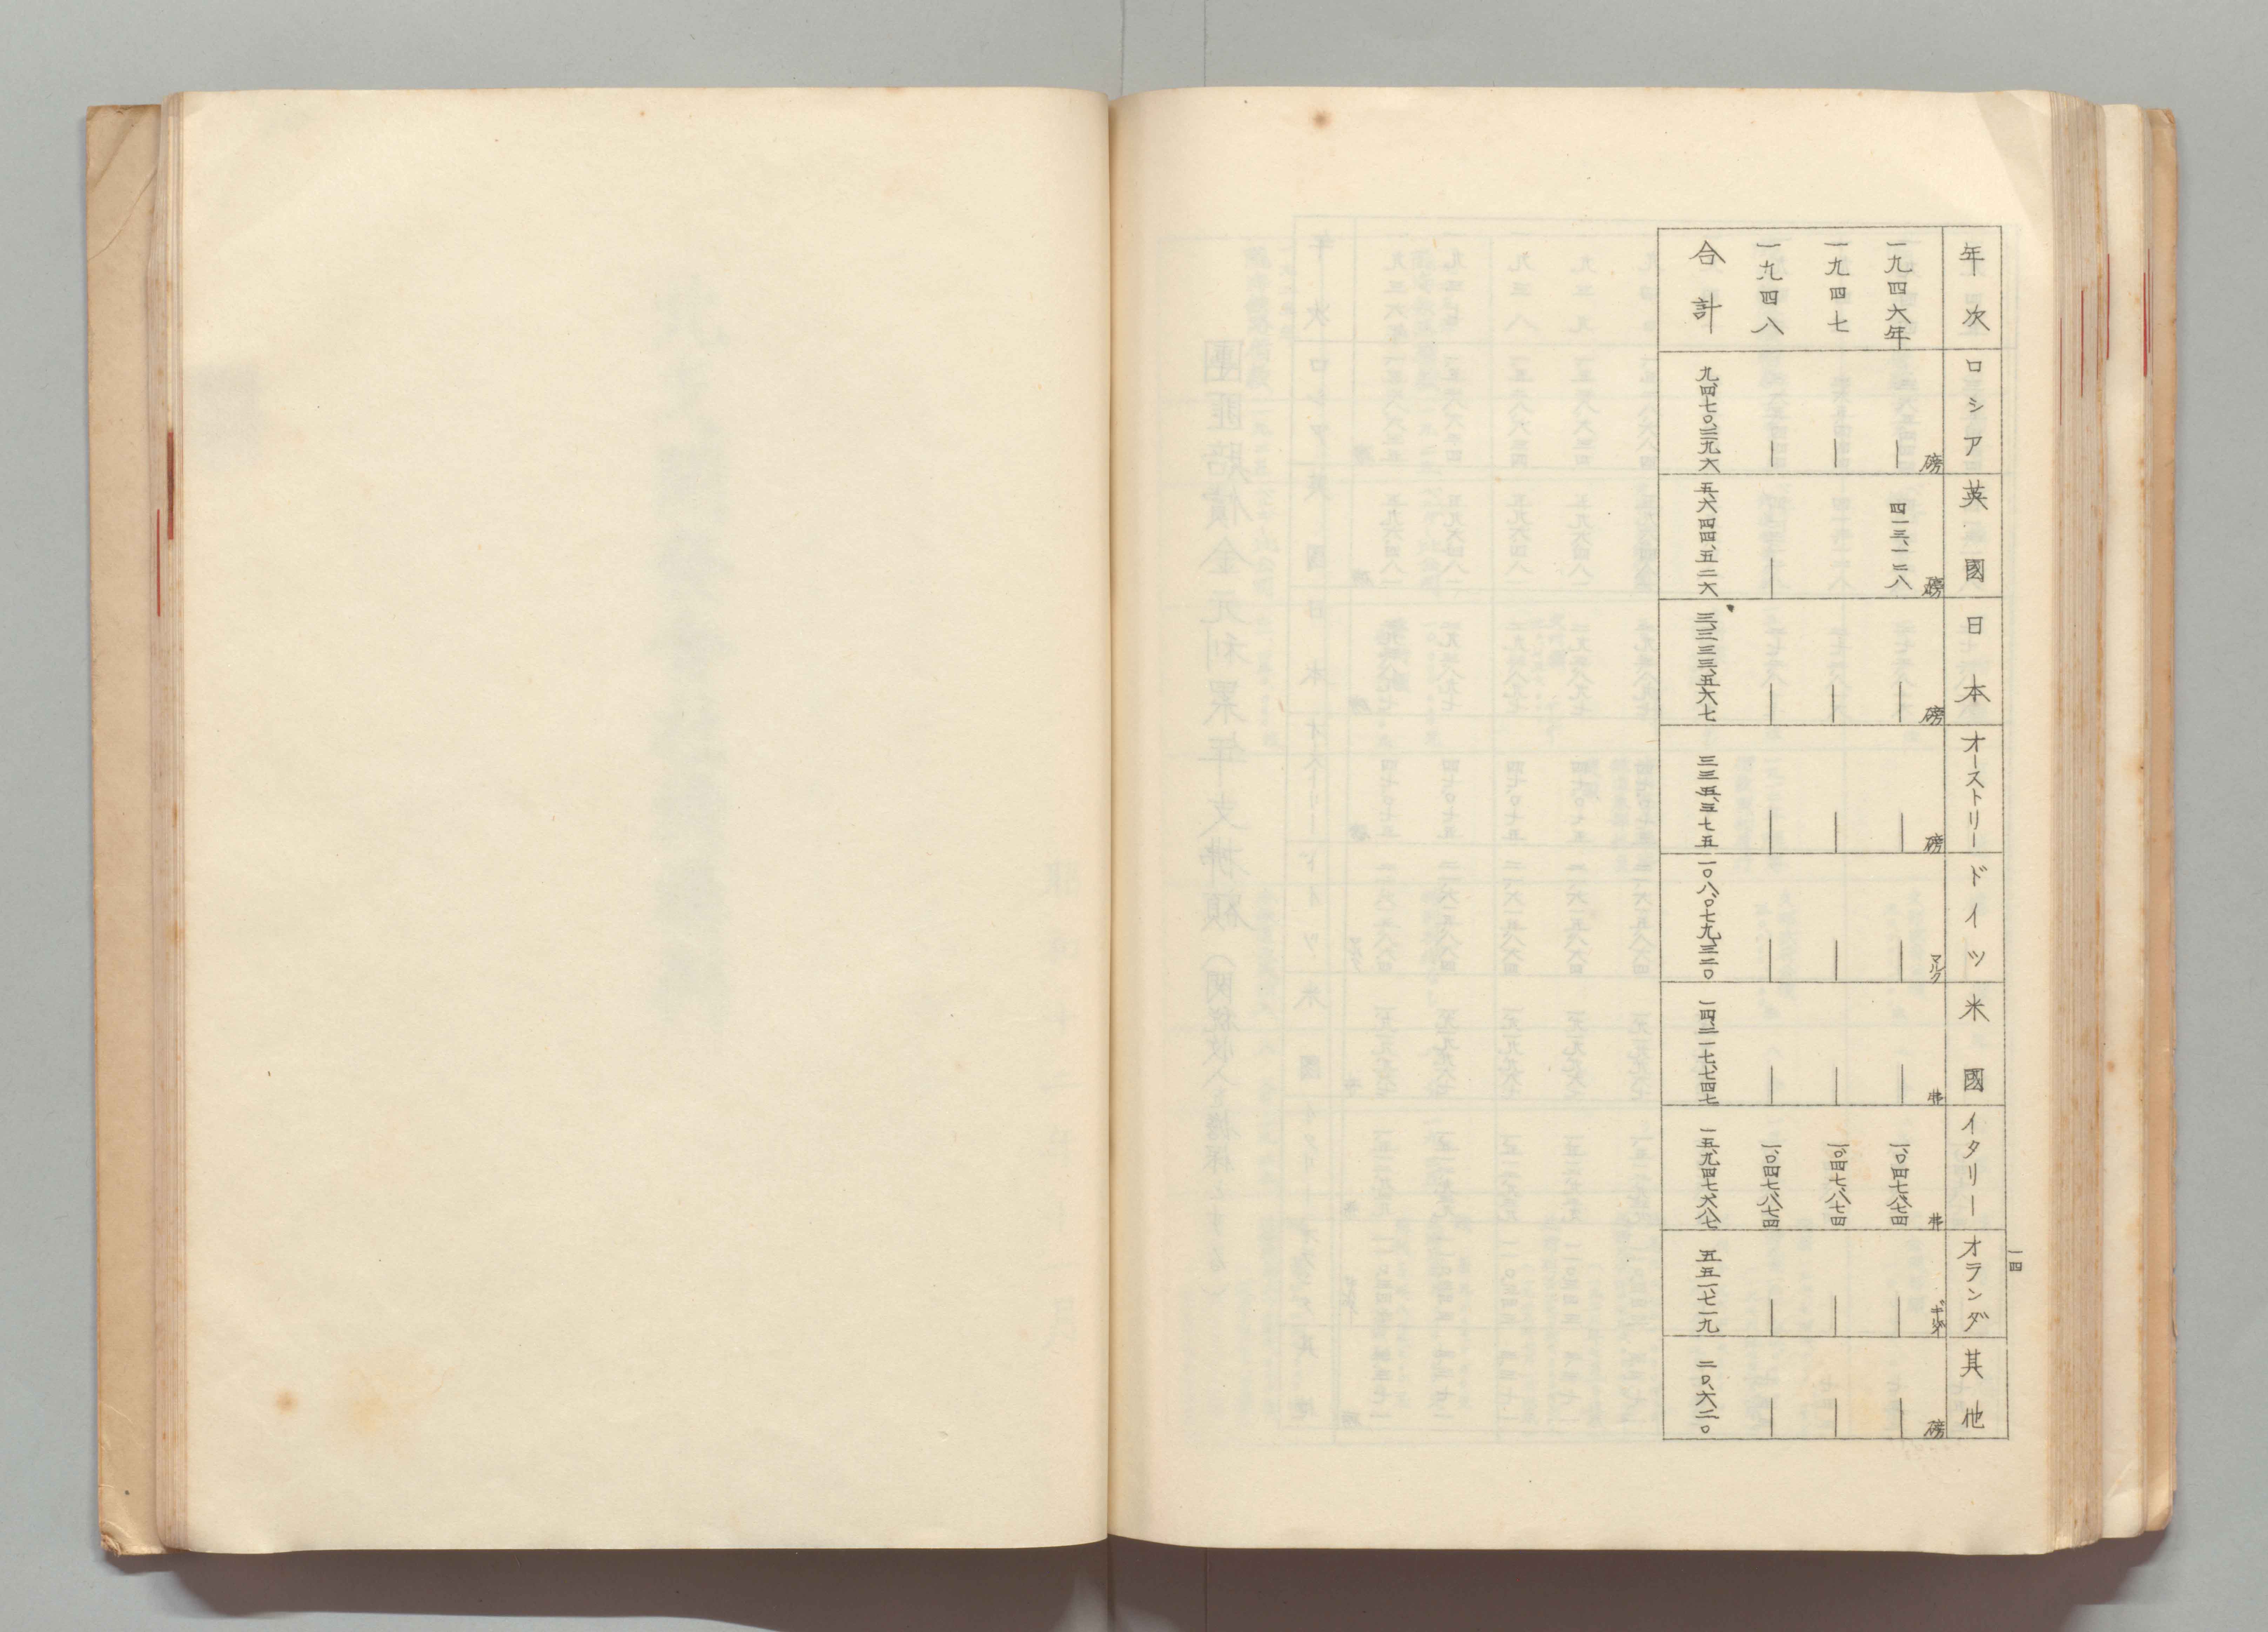 一四
年次 ロシア 英國 日本 オーストリー ドイツ 米國 イタリー オランダ 其他
磅 磅 磅 磅 マルク 弗 弗 ギルダ 磅
一九四六年 ― 四一三、一二八 ― ― ― ― 一、〇四七、八七四 ― ―
一九四七 ― ― ― ― ― 一、〇四七、八七四 ― ―
一九四八 ― ― ― ― ― ― 一、〇四七、八七四 ― ―
合計 九、四七〇、三九六 五、六四四、五二六 三、三三三、五六七 三三五、三七五 一〇八、〇七九、三二〇 一四、二一七、七四七 一五、九四七、六八七 五五一、七一九 二〇、六二〇